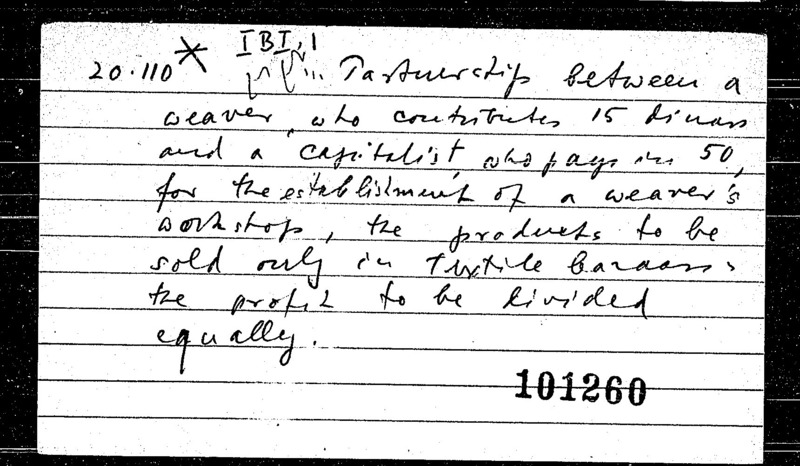 IBI, 1
20.110* Partnership between a
weaver, who contributes 15 dinars
and a "capitalist", who pays in 50,
for the establishment of a weaver's
workshop, the products to be
sold only in textile bazaars,
the profit to be divided
equally.
101260